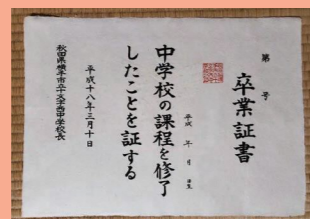 卒業証書
第 号
平成 年 月 日生
中学校の課程を修了
したことを証する
平成十八年三月十日
秋田県横手市立十文字西中学校長